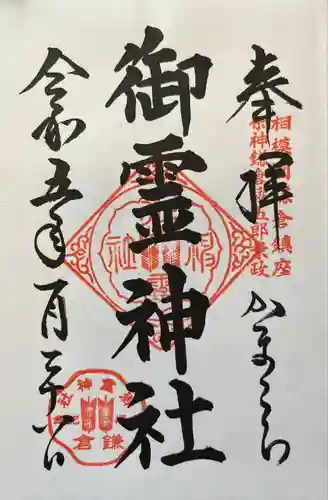 奉拝
かまくら
相模国鎌倉鎮座
祭神鎌倉権五郎景政
御霊神社
令和五年一月二十八日
鎌倉